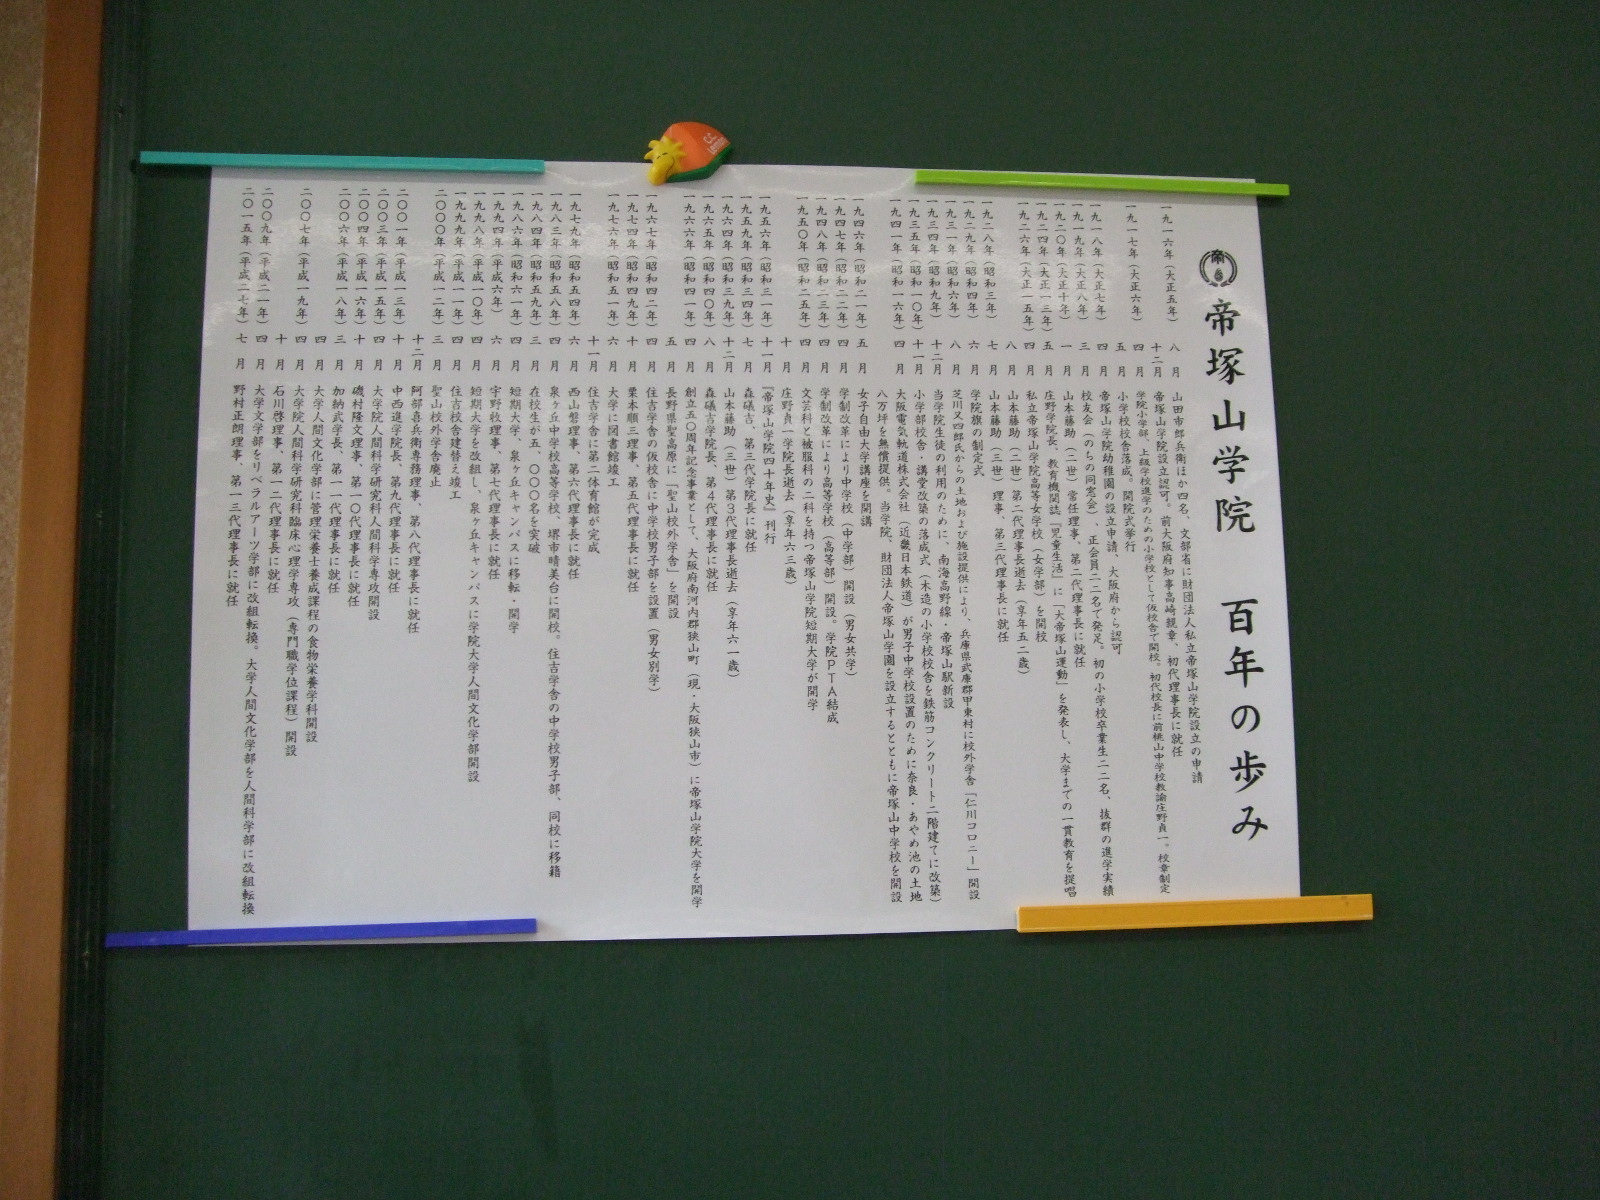 帝塚山学院 百年の歩み
一九一六年(大正五年) 八月 山田市郎兵衛ほか四名、文部省に財団法人私立帝塚山学院設立の申請
十二月 帝塚山学院設立認可。前大阪府知事高崎親章、初代理事長に就任
一九一七年(大正六年) 四月 学院小学部、上級学校進学のための小学校として仮校舎で開校。初代校長に前桃山中学校教諭庄野貞一。校章制定
五月 小学校校舎落成。開院式挙行
一九一八年(大正七年) 四月 帝塚山学院幼稚園の設立申請、大阪府から認可
一九一九年(大正八年) 三月 校友会(のちの同窓会)、正会員二二名で発足。初の小学校卒業生二二名、抜群の進学実績
一九二〇年(大正十年) 一月 山本藤助(二世)常任理事、第二代理事長に就任
一九二四年(大正一三年) 五月 庄野学院長、教育機関誌『児童生活』に「大帝塚山運動」を発表し、大学までの一貫教育を提唱
一九二六年(大正一五年) 四月 私立帝塚山学院高等女学校(女学部)を開校
八月 山本藤助(二世)第二代理事長逝去(享年五二歳)
七月 山本藤助(三世)理事、第三代理事長に就任
一九二八年(昭和三年) 六月 学院旗の制定式
一九二九年(昭和四年) 八月 芝川又四郎氏からの土地および施設提供により、兵庫県武庫郡甲東村に校外学舎「仁川コロニー」開設
一九三一年(昭和六年) 十二月 当学院生徒の利用のために、南海高野線・帝塚山駅新設
一九三四年(昭和九年) 十一月 小学部校舎・講堂改築の落成式(木造の小学校校舎を鉄筋コンクリート二階建てに改築)
一九三五年(昭和一〇年)
一九四一年(昭和一六年) 四月 大阪電気軌道株式会社(近畿日本鉄道)が男子中学校設置のために奈良・あやめ池の土地
八万坪を無償提供。当学院、財団法人帝塚山学園を設立するとともに帝塚山中学校を開設
一九四六年(昭和二一年) 五月 女子自由大学講座を開講
一九四七年(昭和二二年) 四月 学制改革により中学校(中学部)開設(男女共学)
一九四八年(昭和二三年) 四月 学制改革により高等学校(高等部)開設。学院PTA結成
一九五〇年(昭和二五年) 四月 文芸科と被服科の二科を持つ帝塚山学院短期大学が開学
十月 庄野貞一学院長逝去(享年六三歳)
一九五六年(昭和三一年) 十一月 『帝塚山学院四十年史』刊行
一九五九年(昭和三四年) 七月 森礒吉、第三代学院長に就任
一九六四年(昭和三九年) 十二月 山本藤助(三世)第3代理事長逝去(享年六一歳)
一九六五年(昭和四〇年) 八月 森礒吉学院長、第4代理事長に就任
一九六六年(昭和四一年) 四月 創立五〇周年記念事業として、大阪府南河内郡狭山町(現・大阪狭山市)に帝塚山学院大学を開学
五月 長野県聖高原に「聖山校外学舎」を開設
一九六七年(昭和四二年) 四月 住吉学舎の仮校舎に中学校男子部を設置(男女別学)
一九七四年(昭和四九年) 十月 栗本順三理事、第五代理事長に就任
一九七六年(昭和五一年) 六月 大学に図書館竣工
十一月 住吉学舎に第二体育館が完成
一九七九年(昭和五四年) 六月 西山磐理事、第六代理事長に就任
一九八三年(昭和五八年) 四月 泉ヶ丘中学校高等学校、堺市晴美台に開校。住吉学舎の中学校男子部、同校に移籍
一九八四年(昭和五九年) 三月 在校生が五、〇〇〇名を突破
一九八六年(昭和六一年) 四月 短期大学、泉ヶ丘キャンパスに移転・開学
一九九四年(平成六年) 六月 宇野收理事、第七代理事長に就任
一九九八年(平成一〇年) 四月 短期大学を改組し、泉ヶ丘キャンパスに学院大学人間文化学部開設
一九九九年(平成一一年) 四月 住吉校舎建替え竣工
二〇〇〇年(平成一二年) 三月 聖山校外学舎廃止
十二月 阿部喜兵衛専務理事、第八代理事長に就任
二〇〇一年(平成一三年) 十月 中西進学院長、第九代理事長に就任
二〇〇三年(平成一五年) 四月 大学院人間科学研究科人間科学専攻開設
二〇〇四年(平成一六年) 十月 磯村隆文理事、第一〇代理事長に就任
二〇〇六年(平成一八年) 三月 加納武学長、第一一代理事長に就任
四月 大学人間文化学部に管理栄養士養成課程の食物栄養学科開設
二〇〇七年(平成一九年) 四月 大学院人間科学研究科臨床心理学専攻(専門職学位課程)開設
十月 石川啓理事、第一二代理事長に就任
二〇〇九年(平成二一年) 四月 大学文学部をリベラルアーツ学部に改組転換。大学人間文化学部を人間科学部に改組転換
二〇一五年(平成二七年) 七月 野村正朗理事、第一三代理事長に就任